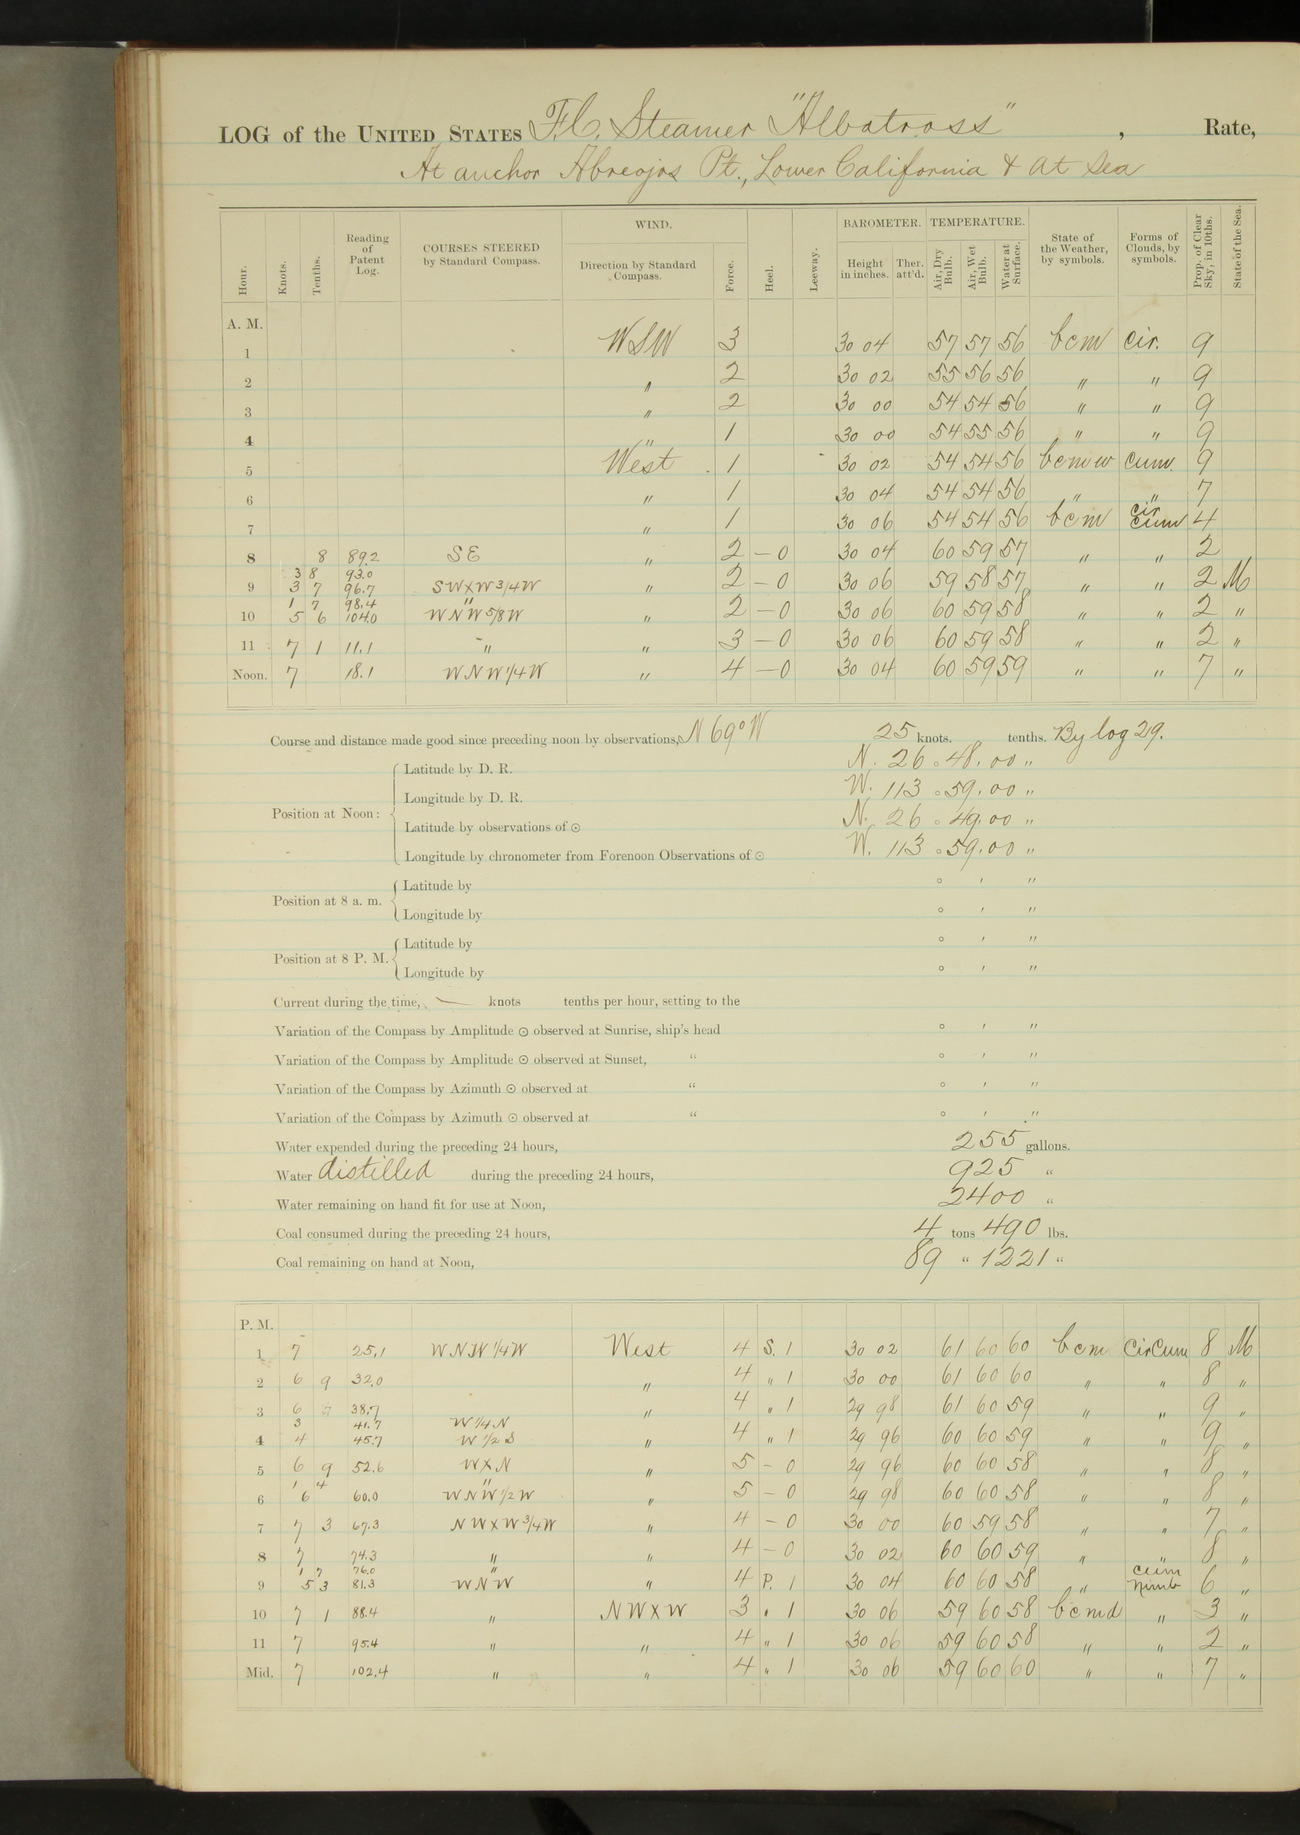 LOG of the UNITED STATES F.C. Steamer "Albatross" , Rate,
At anchor Abreojos Pt., Lower California & at Sea
Hour. Knots. Tenths. Reading of Patent Log. COURSES STEERED by Standard Compass. WIND. Direction by Standard Compass. Force. Heel. Leeway. BAROMETER. Height in inches. Ther. att'd. TEMPERATURE. Air, Dry Bulb. Air, Wet Bulb. Water at Surface. State of the Weather, by symbols. Forms of Clouds, by symbols. Prop. of Clear Sky, in 10ths. State of the Sea.
A. M.
1 WSW 3 30 04 57 57 56 bcm cir. 9
2 " 2 30 02 55 56 56 " " 9
3 " 2 30 00 54 54 56 " " 9
4 " 1 30 00 54 55 56 " " 9
5 West 1 30 02 54 54 56 bcmw cum 9
6 " 1 30 04 54 54 56 " " 7
7 " 1 30 06 54 54 56 bcm cir cum 4
8 8 89.2 SE " 2 - 0 30 04 60 59 57 " " 2
3 8 93.0
9 3 7 96.7 SWXW3/4W " 2 - 0 30 06 59 58 57 " " 2 M
1 7 98.4 "
10 5 6 104.0 WNW5/8W " 2 - 0 30 06 60 59 58 " " 2 "
11 7 1 11.1 " " 3 - 0 30 06 60 59 58 " " 2 "
Noon. 7 18.1 WNW1/4W " 4 - 0 30 04 60 59 59 " " 7 "
Course and distance made good since preceding noon by observations, N 69° W 25 knots. tenths. By log 29.
Latitude by D. R. N. 26 ° 48 ' 00 "
Longitude by D. R. W. 113 ° 59 ' 00 "
Position at Noon:
Latitude by observations of ☉ N. 26 ° 49 ' 00 "
Longitude by chronometer from Forenoon Observations of ☉ W. 113 ° 59 ' 00 "
Position at 8 a. m.
Latitude by ° ' "
Longitude by ° ' "
Position at 8 P. M.
Latitude by ° ' "
Longitude by ° ' "
Current during the time, — knots tenths per hour, setting to the
Variation of the Compass by Amplitude ☉ observed at Sunrise, ship's head ° ' "
Variation of the Compass by Amplitude ☉ observed at Sunset, " ° ' "
Variation of the Compass by Azimuth ☉ observed at " ° ' "
Variation of the Compass by Azimuth ☉ observed at " ° ' "
Water expended during the preceding 24 hours, 255 gallons.
Water distilled during the preceding 24 hours, 925 "
Water remaining on hand fit for use at Noon, 2400 "
Coal consumed during the preceding 24 hours, 4 tons 490 lbs.
Coal remaining on hand at Noon, 89 " 1221 "
P. M.
1 7 25.1 WNW1/4W West 4 S. 1 30 02 61 60 60 bcm CirCum 8 M
2 6 9 32.0 " 4 " 1 30 00 61 60 60 " " 8 "
3 6 7 38.7 " 4 " 1 29 98 61 60 59 " " 9 "
3 41.7 W1/4N
4 4 45.7 W1/2S " 4 " 1 29 96 60 60 59 " " 9 "
5 6 9 52.6 WXN " 5 - 0 29 96 60 60 58 " " 8 "
1 4 "
6 6 60.0 WNW1/2W " 5 - 0 29 98 60 60 58 " " 8 "
7 7 3 67.3 NWXW3/4W " 4 - 0 30 00 60 59 58 " " 7 "
8 7 74.3 " " 4 - 0 30 02 60 60 59 " " 8 "
1 7 76.0 "
9 5 3 81.3 WNW " 4 P. 1 30 04 60 60 58 " cum nimb 6 "
10 7 1 88.4 " NWXW 3 " 1 30 06 59 60 58 bcmd " 3 "
11 7 95.4 " " 4 " 1 30 06 59 60 58 " " 2 "
Mid. 7 102.4 " " 4 " 1 30 06 59 60 60 " " 7 "